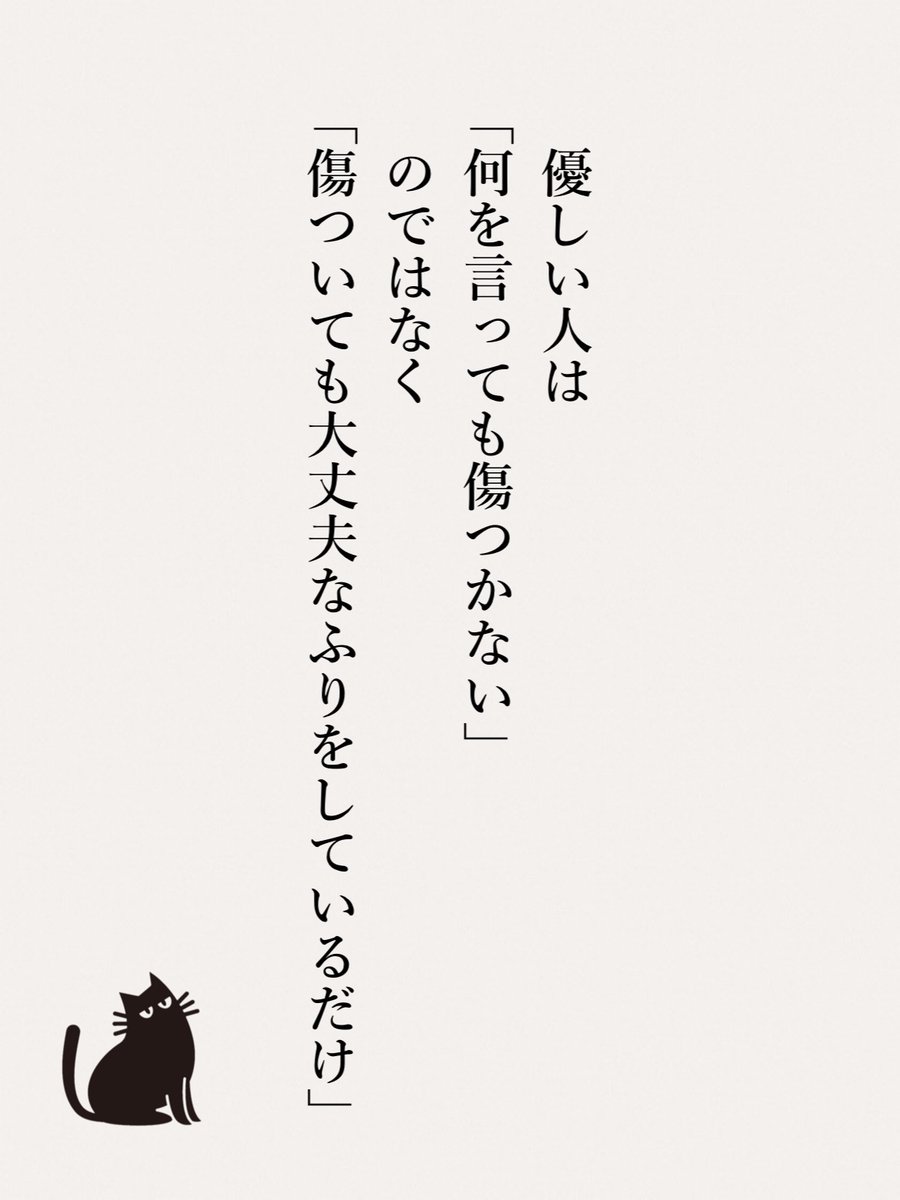 優しい人は
「何を言っても傷つかない」
のではなく
「傷ついても大丈夫なふりをしているだけ」